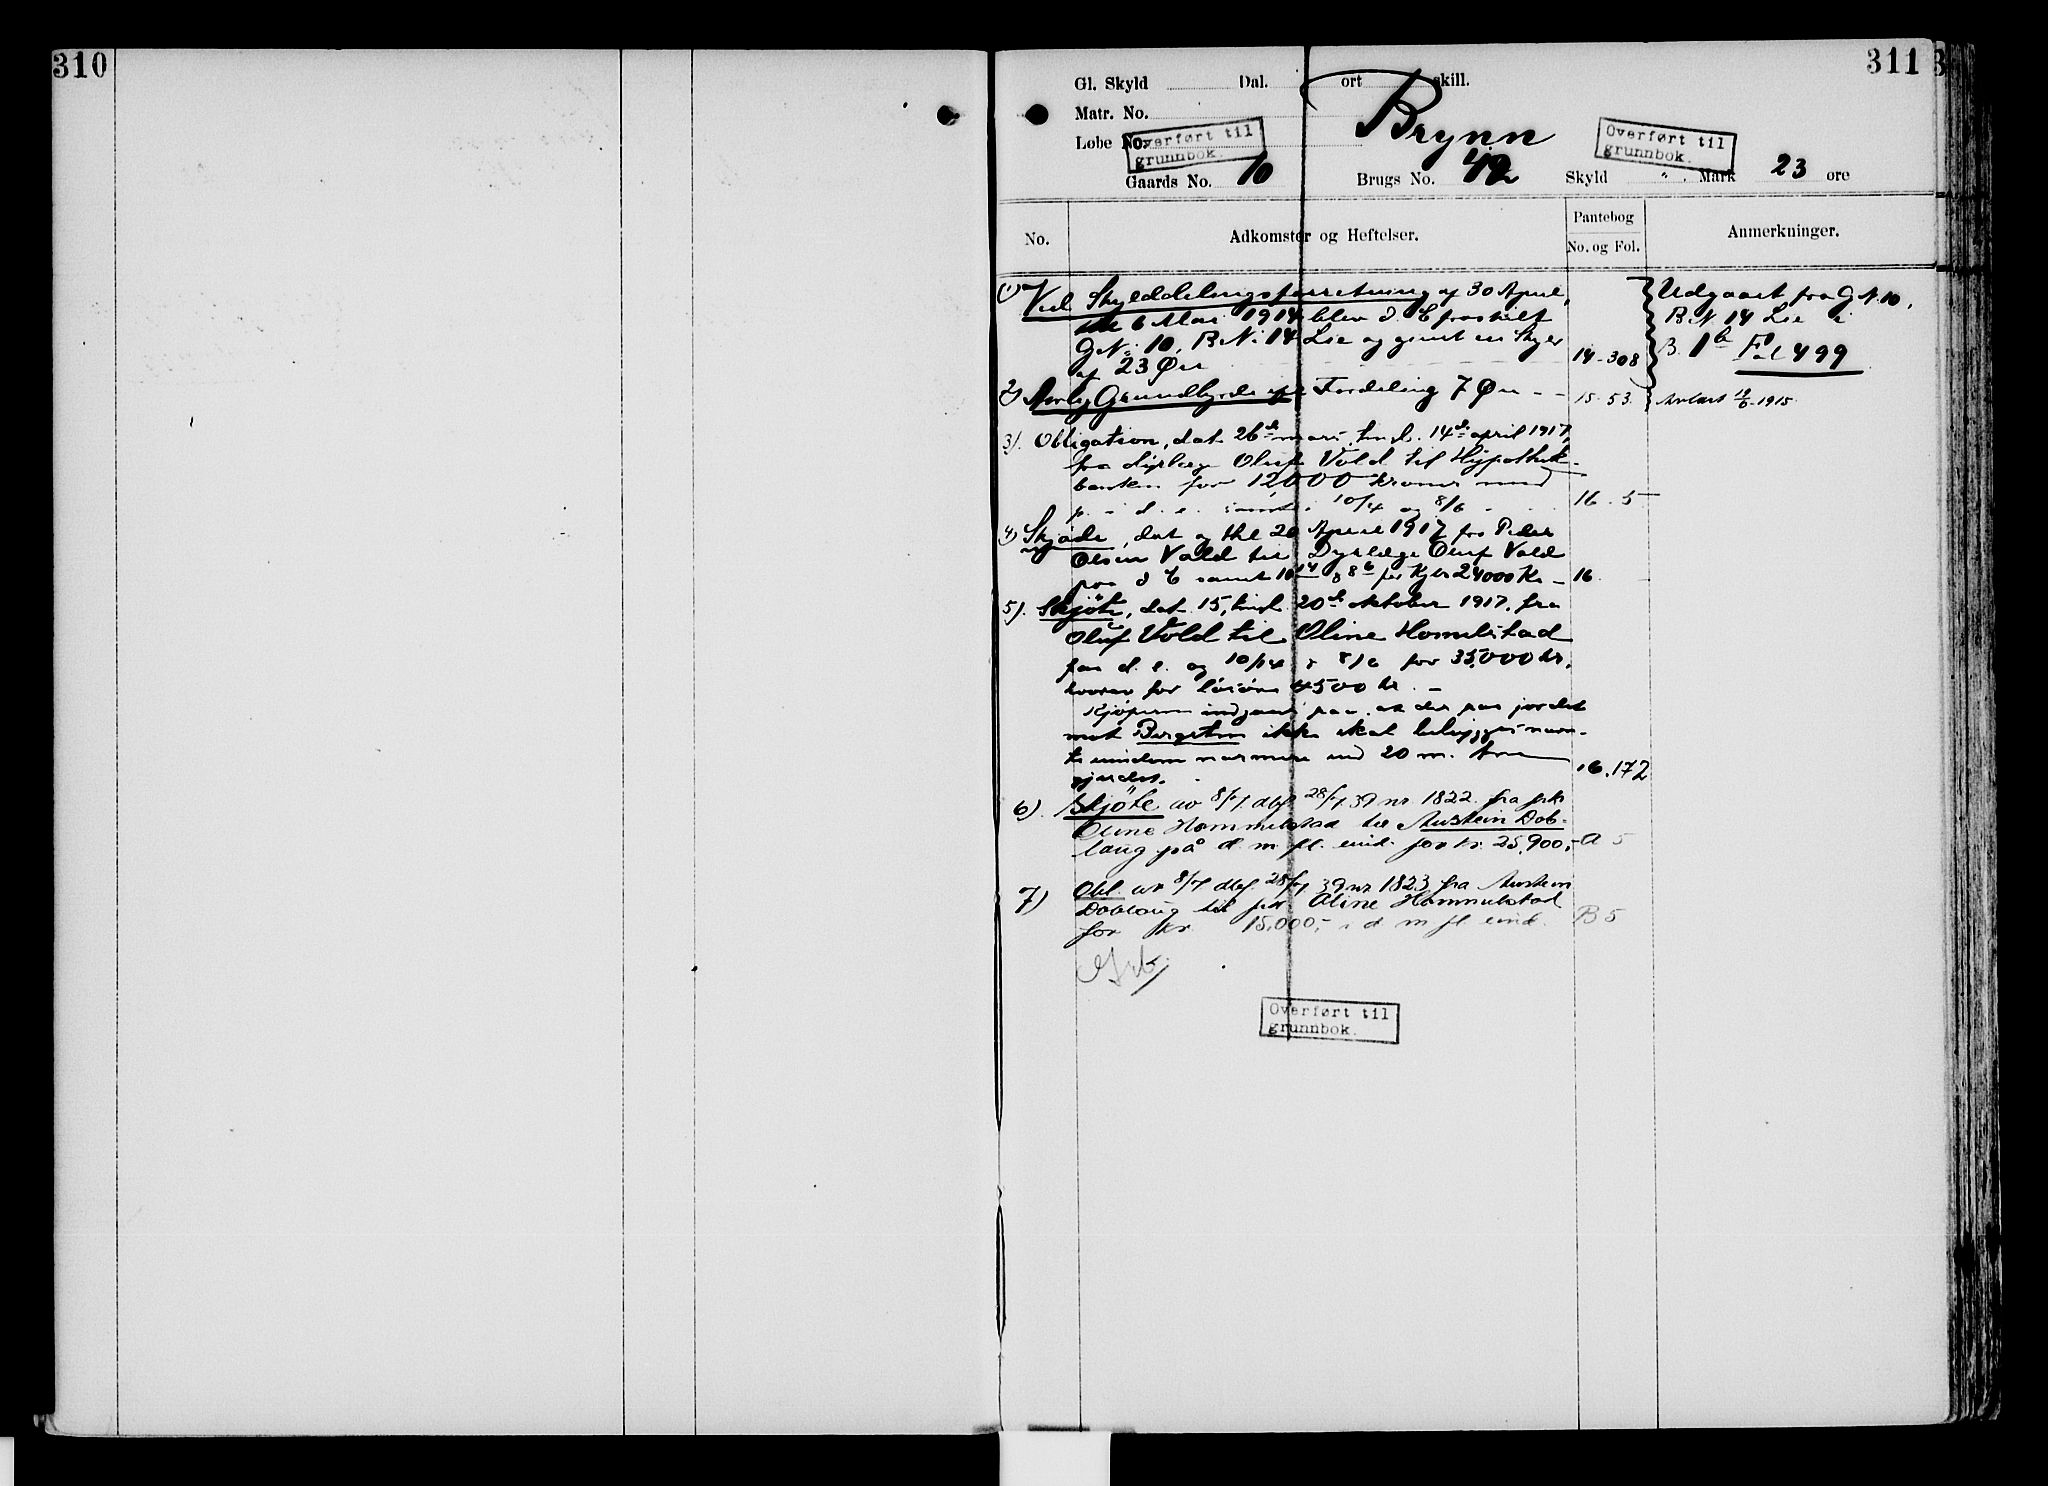 310
311
Gl. Skyld Dal. ort skill.
Matr. No.
Løbe No.
Brynn
Overført til
grunnbok.
Overført til
grunnbok.
Gaards No. 10 Brugs No. 42 Skyld " Mark 23 øre
No.
Adkomster og Heftelser.
Pantebog
No. og Fol.
Anmerkninger.
1) Ved Skylddelingsforretning af 30 April,
6 Mai 1914 blev d. E fraskilt
G.N. 10, B.N. 14 Lie og givet en Skyld
af 23 Øre 14-308
Udgaaet fra G.N. 10,
B.N. 14 Lie i
B. 1b Fol 499
2) Grundbyrde Fordeling 7 Øre - - 15.53.
1915
3). Obligation, dat. 26de mars, tingl. 14de april 1917,
fra dyrlæge Oluf Vold til Hypothek-
banken for 12,000 kroner med
p. i d. e. samt i 10/14 og 8/6 16.5
4) Skjøde, dat og thl 20 April 1917 fra Peder
Olsen Vold til Dyrlæge Oluf Vold
paa d E samt 10/14 & 8/6 for Kjøb 24000 Kr - 16.
5). Skjöte, dat. 15, tingl. 20de oktober 1917, fra
Oluf Vold til Oline Hommelstad
paa d. e. og 10/14 & 8/6 for 35,000 kr.
hvorav for lösöre 4500 kr. -
Kjöperen indgaar paa, at der paa jordet
mot ikke skal bebygges
eiendom nærmere end 20 m. fra
gjerdet. 16.172
6). Skjöte av 8/7 dbf 28/7 39 nr. 1822 fra frk
Oline Hommelstad til Austein Dob-
laug på d. m. fl. eiend. for kr. 25.900,- A 5
7) Obl. av 8/7 dbf. 28/7 39 nr 1823 fra Austein
Doblaug til frk Oline Hommelstad
for kr 15.000,- i d m fl eiend. B 5
Overført til
grunnbok.